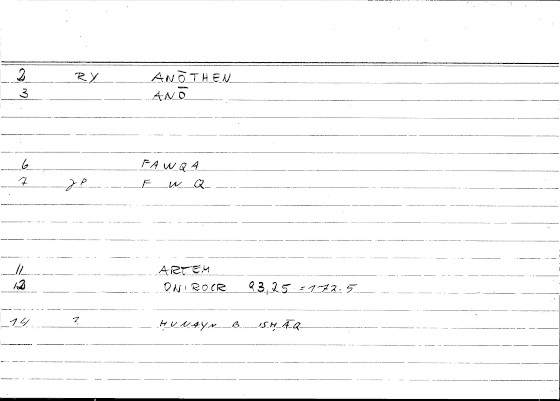 2 RY ANŌTHEN
3 ANŌ
6 FAWQA
7 F W Q
11 ARTEM
12 ONIROCR 93,25 = 172.5
14 ? ḤUNAYN B ISḤĀQ